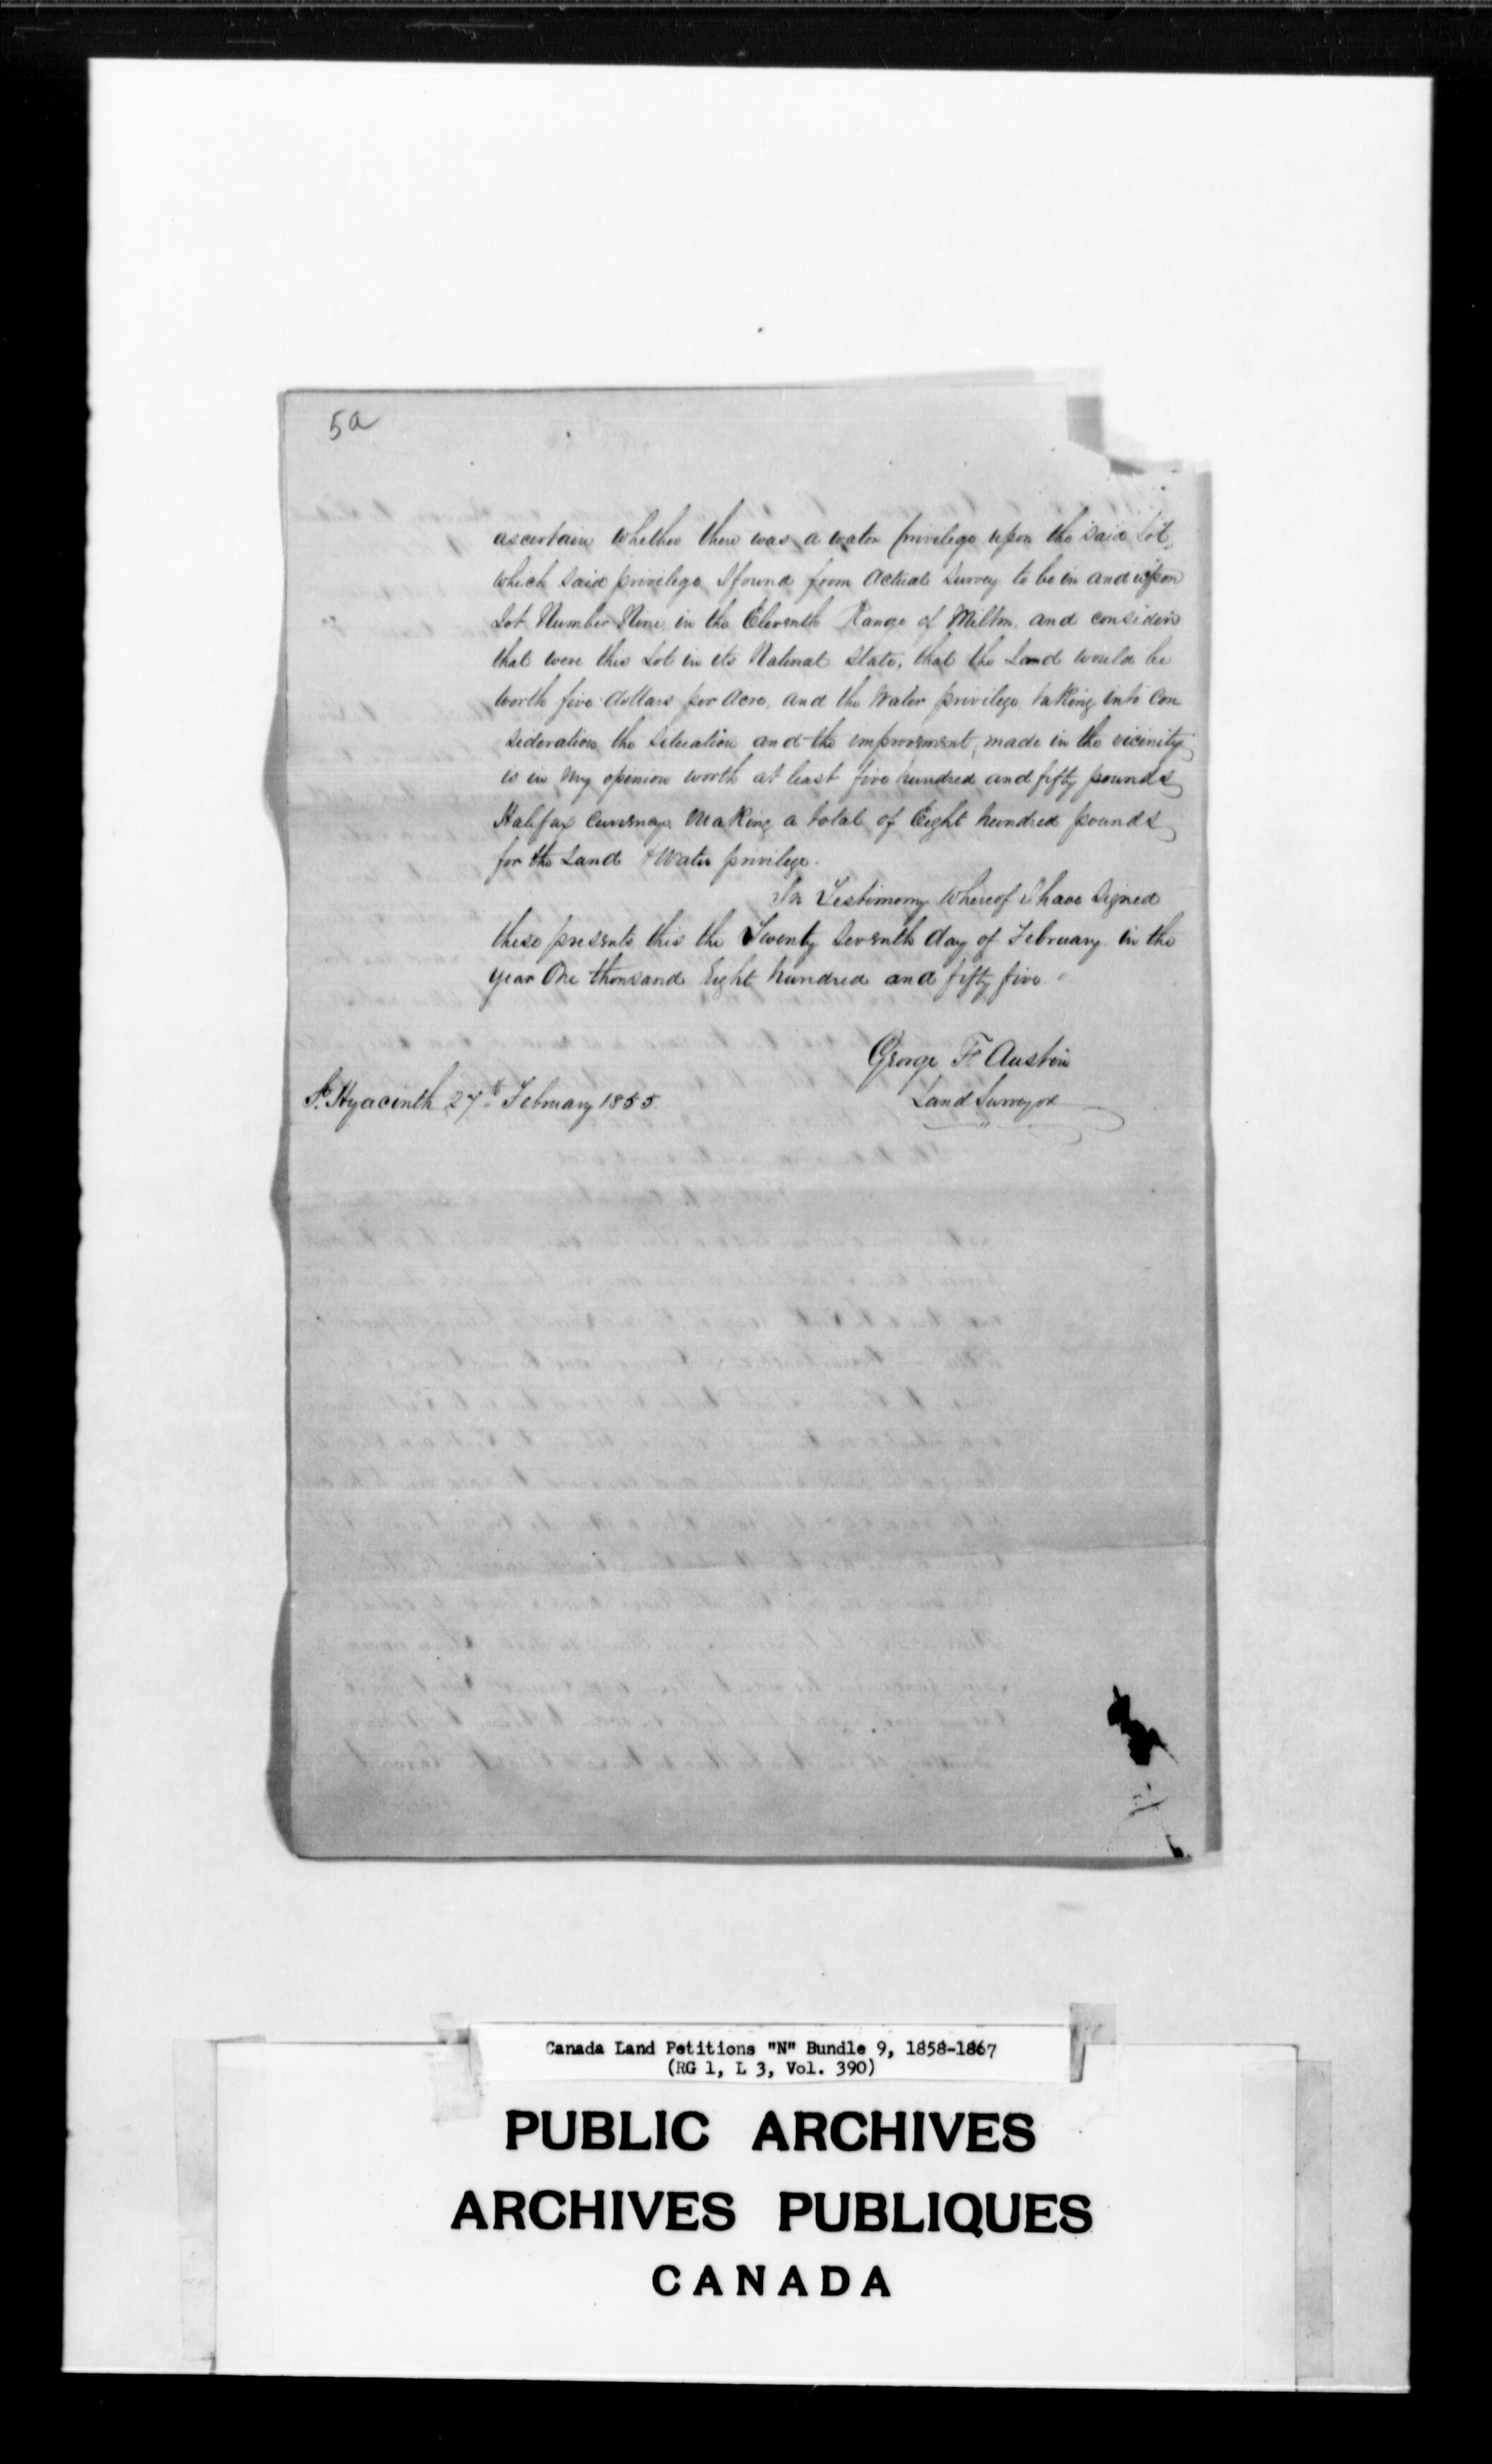 5a
ascertain whether there was a water privilege upon the said Lot,
which said privilege I found from actual Survey to be in and upon
Lot Number Nine in the Eleventh Range of Milton, and consider
that were this Lot in its Natural State, that the Land would be
worth five dollars per Acre, and the Water privilege taking into Con
sideration the Situation and the improvement, made in the vicinity
is in my opinion worth at least five hundred and fifty pounds
Halifax Currency. Making a total of Eight hundred pounds
for the Land & Water privilege.
In Testimony whereof I have Signed
these presents this the Twenty Seventh day of February in the
year One thousand Eight hundred and fifty five
George F. Austin
Land Surveyor
St. Hyacinth 27th February 1855.
Canada Land Petitions "N" Bundle 9, 1858-1867
(RG 1, L 3, Vol. 390)
PUBLIC ARCHIVES
ARCHIVES PUBLIQUES
CANADA